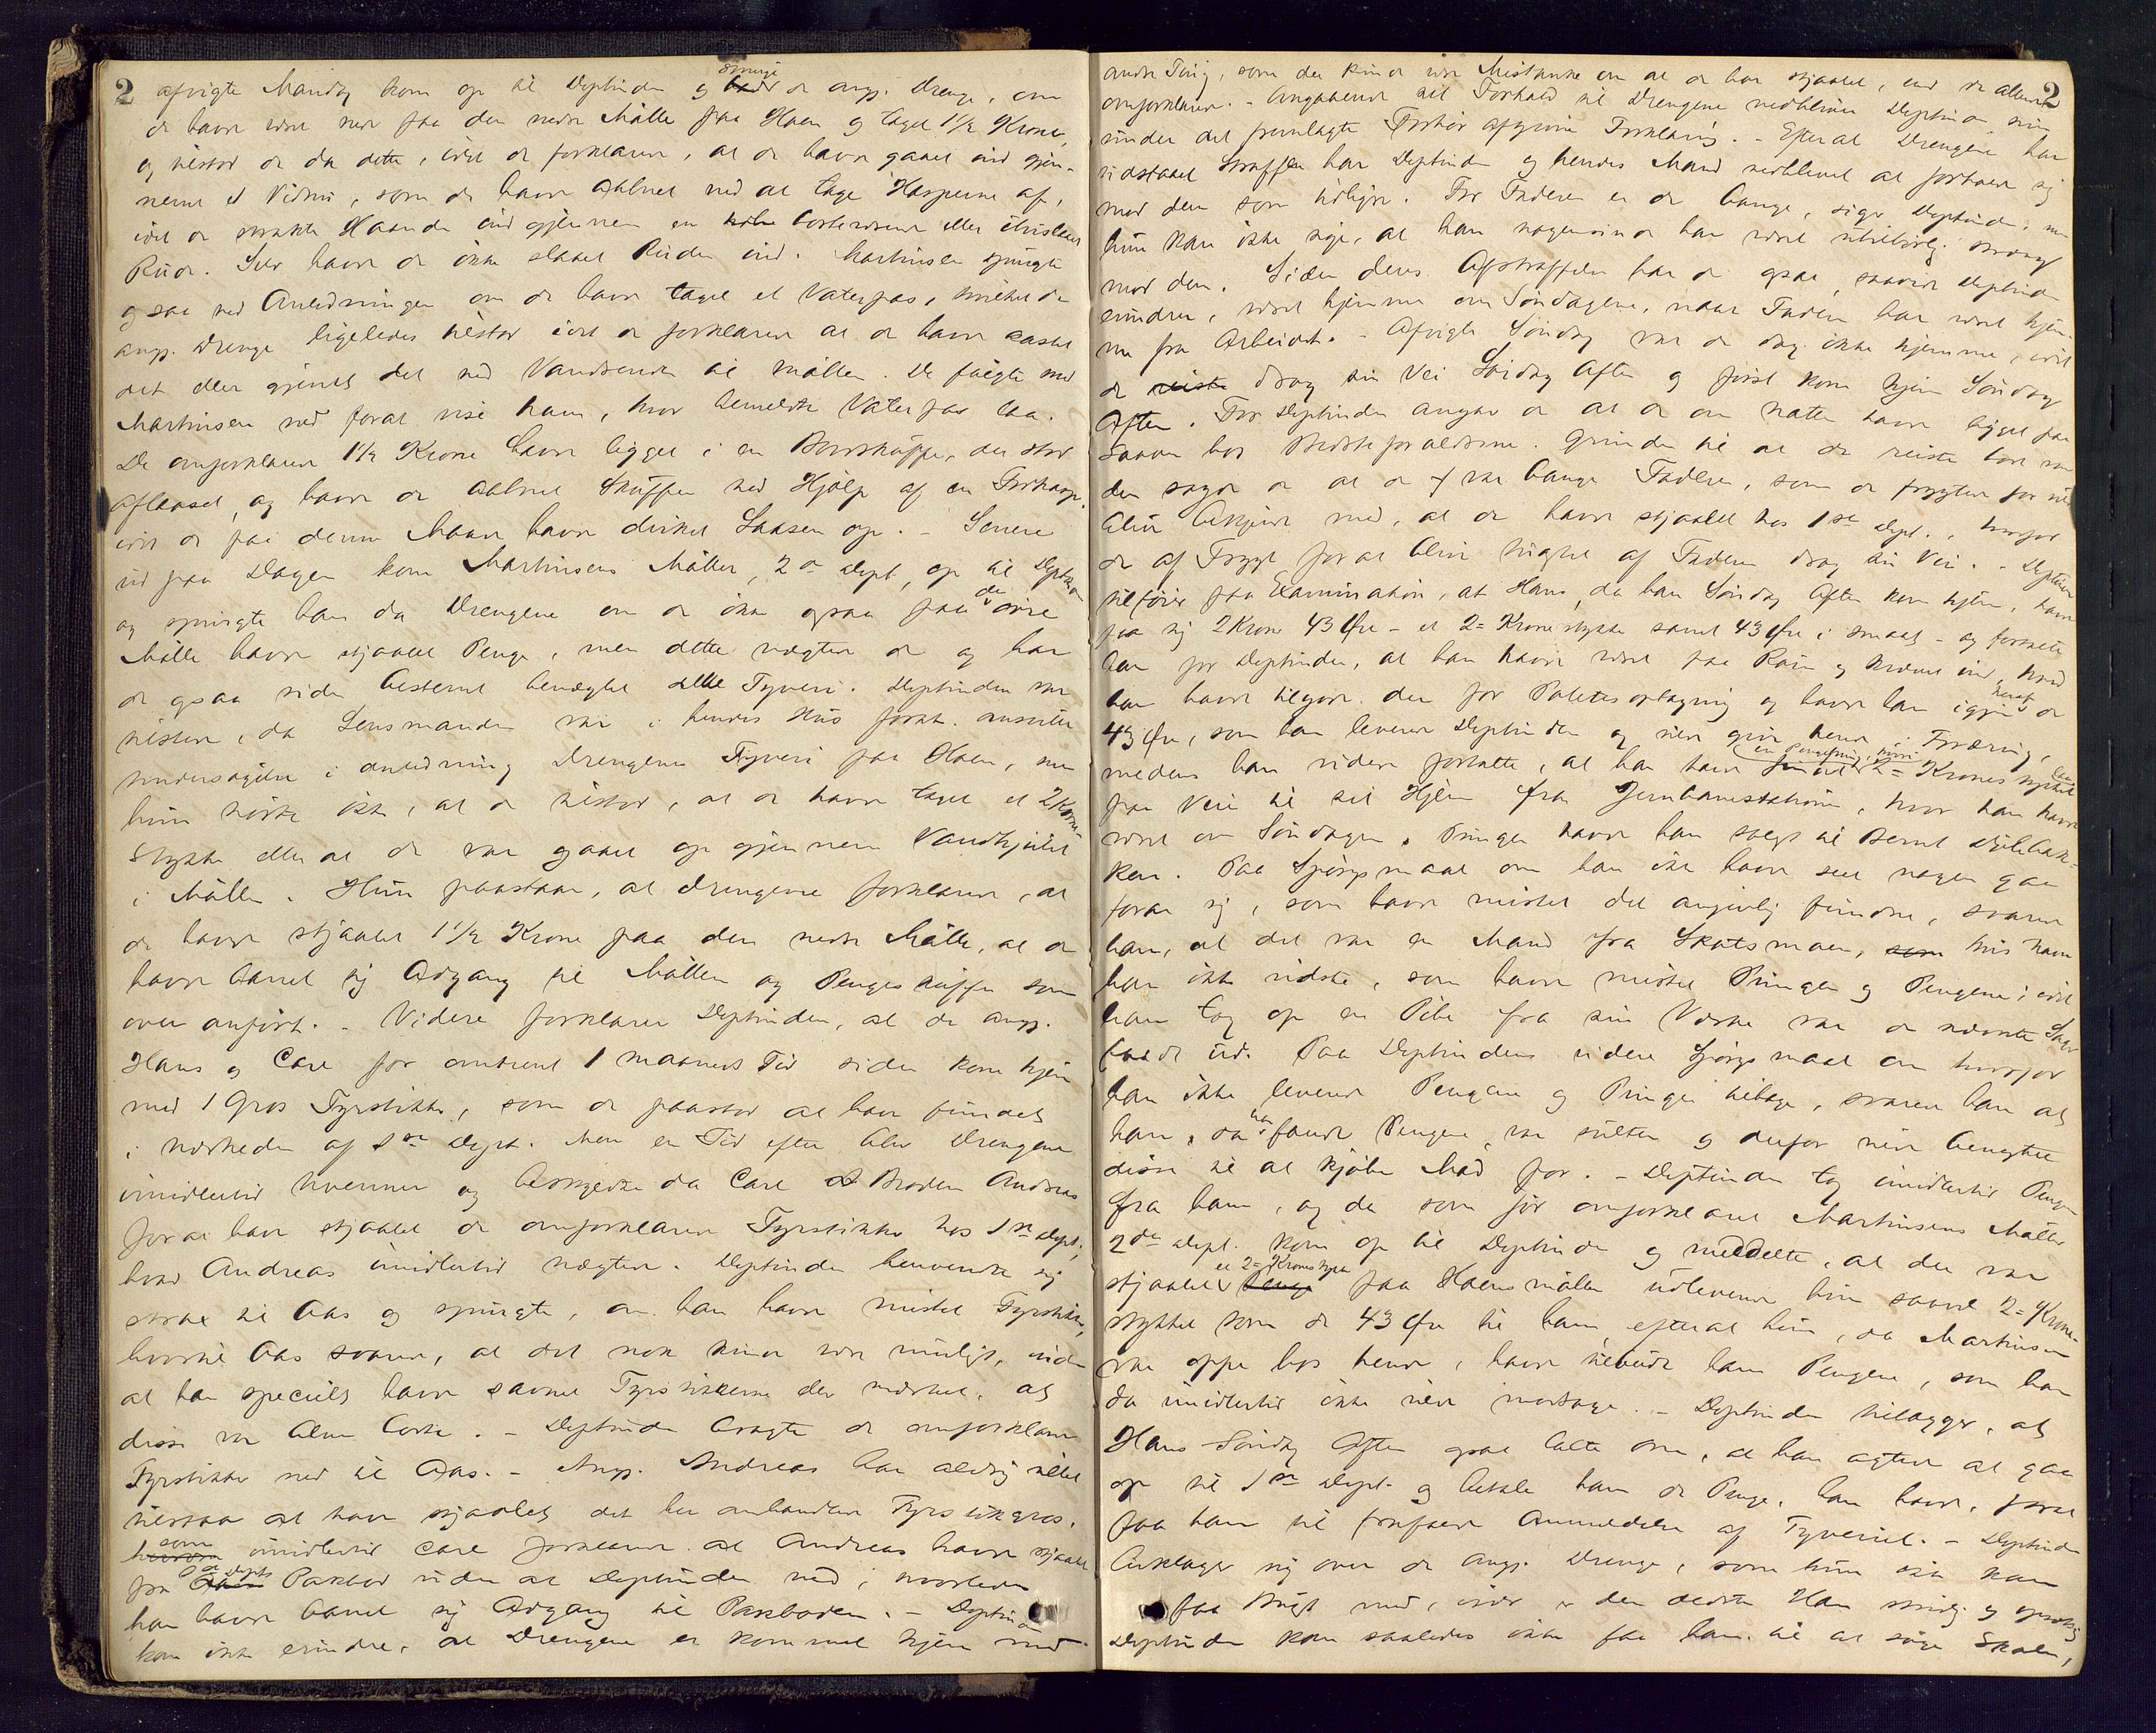 2
afvigte Mandag kom op til Deptinden og spurgte de angj. Drenge, om
de havde været nede paa den nedre Mølle paa Hoen og taget 1½ Krone,
og tilstod de da dette, idet de forklarede, at de havde gaaet ind gjen-
nem et Vindu, som de havde aabnet ved at tage Hasperne af,
idet de strakte Haanden ind gjennem en bortværende eller itusslaaet
Rude. Selv havde de ikke slaaet Ruden ind. Martinsen spurgte
ogsaa ved Anledningen om de havde taget et Vaterpas, hvilket de
angj. Drenge ligeledes tilstod idet de forklarede at de havde kastet
det eller gjemt det ved Vandrenden til Møllen. De fulgte med
Martinsen ned forat vise ham, hvor bemeldte Vaterpas laa.
De omforklarede 1½ Krone havde ligget i en Bordskuffe, der stod
aflaaset, og havde de aabnet Skuffen ved Hjælp af en
idet de paa denne Maade havde dirket Laasen op. - Senere
ud paa Dagen kom Martinsens Møller, 2de Dept, op til Deptinden
og spurgte han da Drengene om de ikke ogsaa paa den øvre
Mølle havde stjaalet Penge, men dette nægtede de og har
de ogsaa siden bestemt benægtet dette Tyveri. Deptinden var
tilstede, da Lensmanden var i hendes Hus forat anstille
Undersøgelse i Anledning Drengenes Tyveri paa Hoen, men
hun hørte ikke, at de tilstod, at de havde taget et 2 Krone-
stykke eller at de var gaaet op gjennem Vandhjulet
i Møllen. Hun paastaar, at Drengene forklarede, at
de havde stjaalet 1½ Krone paa den nedre Mølle, at de
havde banet sig Adgang til Møllen og Pengeskuffen som
oven anført. - Videre forklarer Deptinden, at de angj.
Hans og Carl for omtrent 1 Maaneds Tid siden kom hjem
med 1 Gros Fyrstikker, som de paastod at have fundet
i Nærheden af 1ste Dept. Men en Tid efter blev Drengene
imidlertid uvenner og beskyldte da Carl Broderen Andreas
for at have stjaalet de omforklarede Fyrstikker hos 1ste Dept,
hvad Andreas imidlertid nægtede. Deptinden henvendte sig
strax til Aas og spurgte, om han havde mistet Fyrstikker,
hvortil Aas svarede, at det nok kunde være muligt, uden
at han specielt havde savnet Fyrstikkerne eller mærket, at
disse var blevne borte. - Deptinden bragte de omforklarede
Fyrstikker ned til Aas. - Angj. Andreas har aldrig villet
tilstaa at have stjaalet det her omhandlede Fyrstikgros,
som imidlertid Carl forklarede at Andreas havde stjaalet
fra 1ste Depts Pakbod uden at Deptinden ved, hvorledes
han havde banet sig Adgang til Pakboden. - Deptinden
kan ikke erindre, at Drengene er kommet hjem med
2
andre Ting, som der kunde være Mistanke om at de har stjaalet, end de allerede
omforklarede. - Angaaende sit Forhold til Drengene vedbliver Deptinden sin
under det fremlagte Forhør afgivne Forklaring. - Efterat Drengene har
udstaaet Straffen har Deptinden og hendes Mand vedblevet at forholde sig
mod dem som tidligere. For Faderen er de bange, siger Deptinden, men
hun kan ikke sige, at han nogensinde har været utilbørlig streng
mod dem. Siden deres Afstraffelse har de ogsaa, saavidt Deptinden
erindrer, været hjemme om Søndagene, naar Faderen har været hjem-
me fra Arbeidet. - Afvigte Søndag var de dog ikke hjemme, idet
de drog sin Vei Lørdag Aften og først kom hjem Søndag
Aften. For Deptinden angav de at de om Natten havde ligget paa
Laaven hos Bedsteforældrene. Grunden til at de reiste bort var
den sagde de at de var bange Faderen, som de frygtede for vilde
blive bekjendt med, at de havde stjaalet hos 1ste Dept., hvorfor
de af Frygt for at blive slaaet af Faderen drog sin Vei. - Deptinden
tilføier paa Examination, at Hans, da han Søndag Aften kom hjem, havde
paa sig 2 Kroner 43 Øre - et 2-Kronestykke samt 43 Øre i smaat - og fortalte
han for Deptinden, at han havde været paa Raen og krævet ind, hvad
han havde tilgode der for Potetesoptagning og havde han igjen heraf de
43 Øre, som han leverede Deptinden og vilde give hende i Foræring,
medens han videre fortalte, at han havde fundet en Pengepung, hvori 2-Kronestykket laa
paa Veien til sit Hjem fra Jernbanestationen, hvor han havde
været om Søndagen. Pungen havde han solgt til Bernt
ken. Paa Spørgsmaal om han ikke havde seet nogen gaa
foran sig, som havde mistet det angivelig fundne, svarede
han, at det var en Mand fra Skotsmoen, hvis Navn
han ikke vidste, som havde mistet Pungen og Pengene; idet
han tog op en Pibe fra sin Væske var de nævnte Sager
faldt ud. Paa Deptindens videre Spørgsmaal om hvorfor
han ikke leverede Pengene og Pungen tilbage, svarede han at
han, da han fandt Pengene, var sulten og derfor vilde benytte
disse til at kjøbe Mad for. - Deptinden tog imidlertid Pengene
fra ham, og da som før omforklaret Martinsens Møller
2den Dept. kom op til Deptinden og meddelte, at der var
stjaalet et 2-Kronestykke paa Hoensmøllen udleverede hun saavel 2-Krone-
stykket som de 43 Øre til ham, efterat hun, da Martinsen
var oppe hos hende, havde tilbudt ham Pengene, som han
da imidlertid ikke vilde modtage. - Deptinden tillægger, at
Hans Søndag Aften ogsaa talte om, at han agtede at gaa
op til 1ste Dept. og betale ham de Penge, han havde, forat
faa ham til frafalde Anmeldelse af Tyveriet. - Deptinden
beklager sig over de angj. Drenge, som hun ikke kan
faa Bugt med, især er den ældste Hans og
Deptinden kan saaledes ikke faa ham til at søge Skolen,